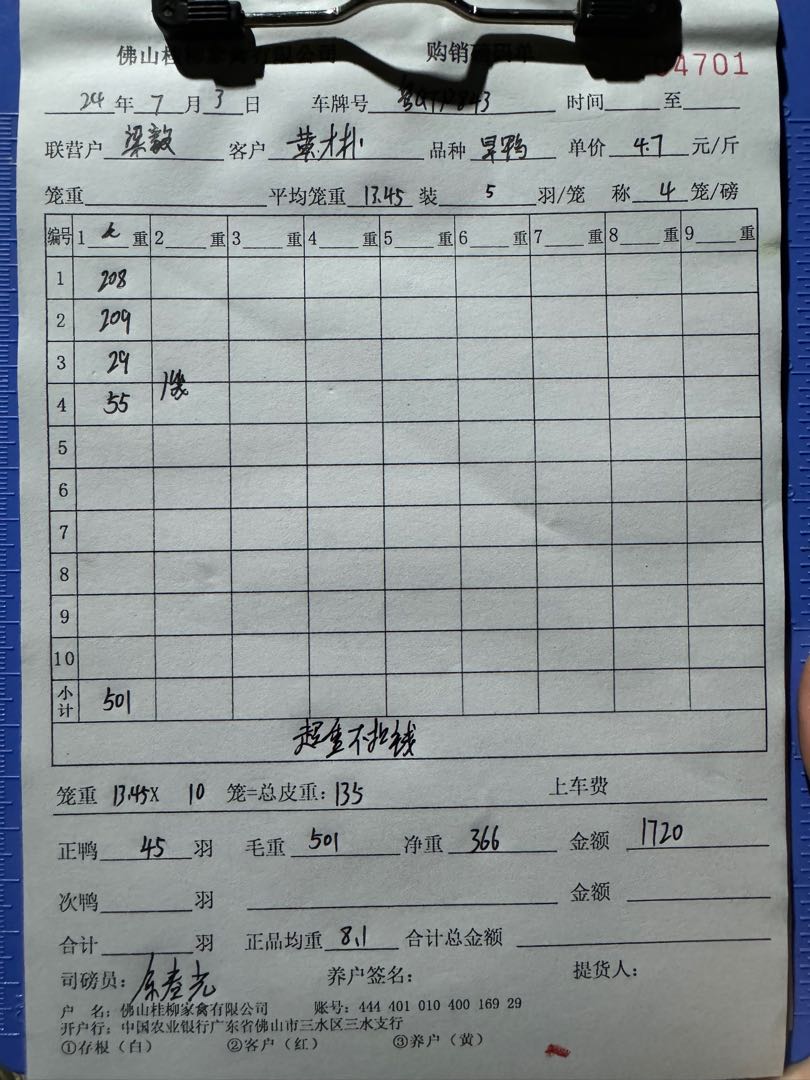 佛山桂柳家禽有限公司 购销 单 4701
24年7月3日 车牌号 时间 至
联营户 梁毅 客户 黄木彬 品种 旱鸭 单价 4.7 元/斤
笼重 平均笼重 13.45 装 5 羽/笼 称 4 笼/磅
编号 1 重 2 重 3 重 4 重 5 重 6 重 7 重 8 重 9 重
1 208
2 209
3 29
4 55
5
6
7
8
9
10
小计 501
超重不扣钱
笼重 13.45X 10 笼=总皮重: 135 上车费
正鸭 45 羽 毛重 501 净重 366 金额 1720
次鸭 羽 金额
合计 羽 正品均重 8.1 合计总金额
司磅员: 养户签名: 提货人:
户 名: 佛山桂柳家禽有限公司 账号: 444 401 010 400 169 29
开户行: 中国农业银行广东省佛山市三水区三水支行
①存根(白) ②客户(红) ③养户(黄)